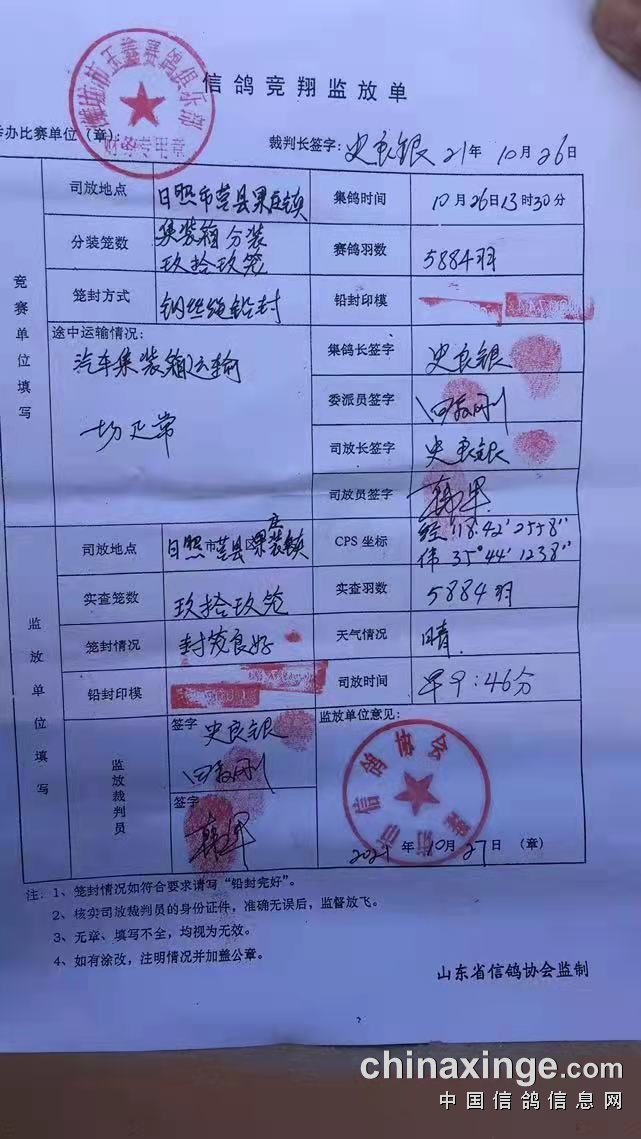 信鸽竞翔监放单
潍坊市玉鑫赛鸽俱乐部
财务专用章
举办比赛单位（章）：
裁判长签字：史良银 21年10月26日
竞赛单位填写
司放地点 日照市莒县果庄镇 集鸽时间 10月26日13时30分
分装笼数 集装箱分装 玖拾玖笼 赛鸽羽数 5884羽
笼封方式 钢丝绳铅封 铅封印模
途中运输情况： 集鸽长签字 史良银
汽车集装箱运输 委派员签字
一切正常 司放长签字 史良银
司放员签字
监放单位填写
司放地点 日照市莒县果庄镇 CPS 坐标 经118.42'2558"
伟35°44'1238"
实查笼数 玖拾玖笼 实查羽数 5884羽
笼封情况 封笼良好 天气情况 晴.
铅封印模 司放时间 早7:46分
监放裁判员 签字 史良银 监放单位意见：
签字
信鸽协会
2021年10月27日（章）
注：1、笼封情况如符合要求请写“铅封完好”。
2、核实司放裁判员的身份证件，准确无误后，监督放飞。
3、无章、填写不全，均视为无效。
4、如有涂改，注明情况并加盖公章。
山东省信鸽协会监制
chinaxinge.com
中国信鸽信息网